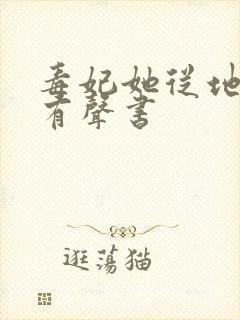 毒妃她從地
有聲書
逛蕩猫